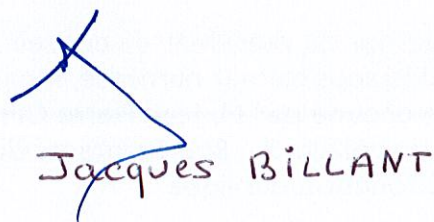 Jacques BiLLANT